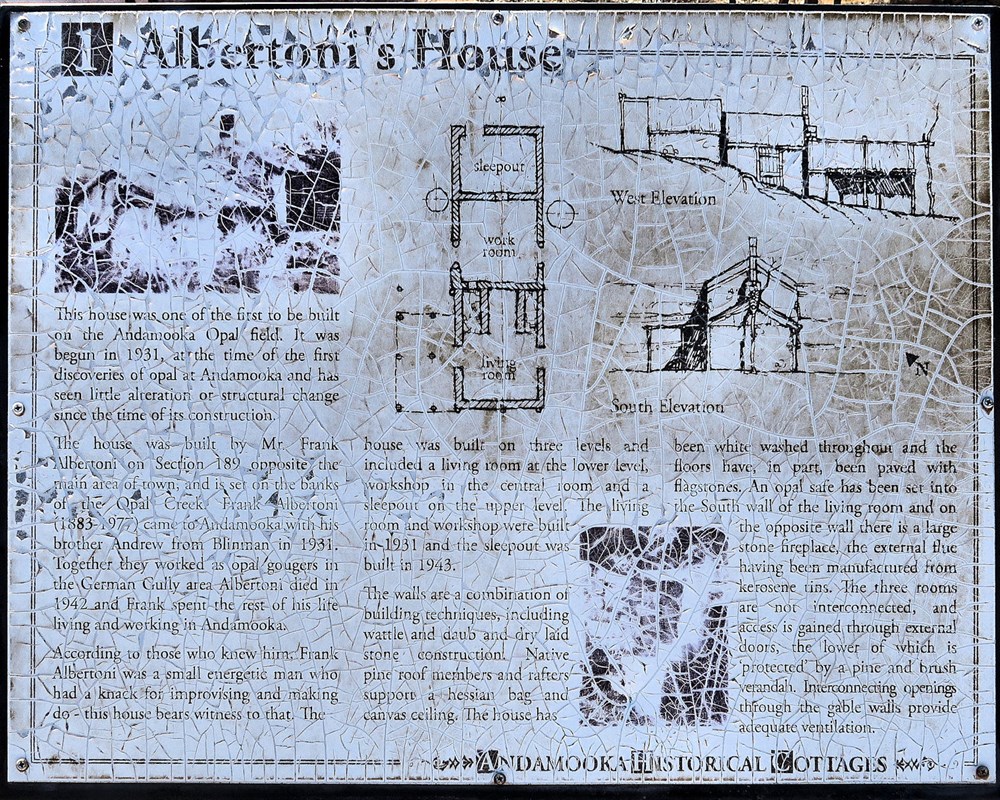 1 Albertoni's House
sleepout
work
room
living
room
West Elevation
South Elevation
N
This house was one of the first to be built
on the Andamooka Opal field. It was
begun in 1931, at the time of the first
discoveries of opal at Andamooka and has
seen little alteration or structural change
since the time of its construction.
The house was built by Mr. Frank
Albertoni on Section 189 opposite the
main area of town, and is set on the banks
of the Opal Creek. Frank Albertoni
(1883- 977) came to Andamooka with his
brother Andrew from Blinman in 1931.
Together they worked as opal gougers in
the German Gully area Albertoni died in
1942 and Frank spent the rest of his life
living and working in Andamooka.
According to those who knew him, Frank
Albertoni was a small energetic man who
had a knack for improvising and making
do - this house bears witness to that. The
house was built on three levels and
included a living room at the lower level,
workshop in the central room and a
sleepout on the upper level. The living
room and workshop were built
in 1931 and the sleepout was
built in 1943.
The walls are a combination of
building techniques, including
wattle and daub and dry laid
stone construction. Native
pine roof members and rafters
support a hessian bag and
canvas ceiling. The house has
been white washed throughout and the
floors have, in part, been paved with
flagstones. An opal safe has been set into
the South wall of the living room and on
the opposite wall there is a large
stone fireplace, the external flue
having been manufactured from
kerosene tins. The three rooms
are not interconnected, and
access is gained through external
doors, the lower of which is
'protected' by a pine and brush
verandah. Interconnecting openings
through the gable walls provide
adequate ventilation.
ANDAMOOKA HISTORICAL COTTAGES